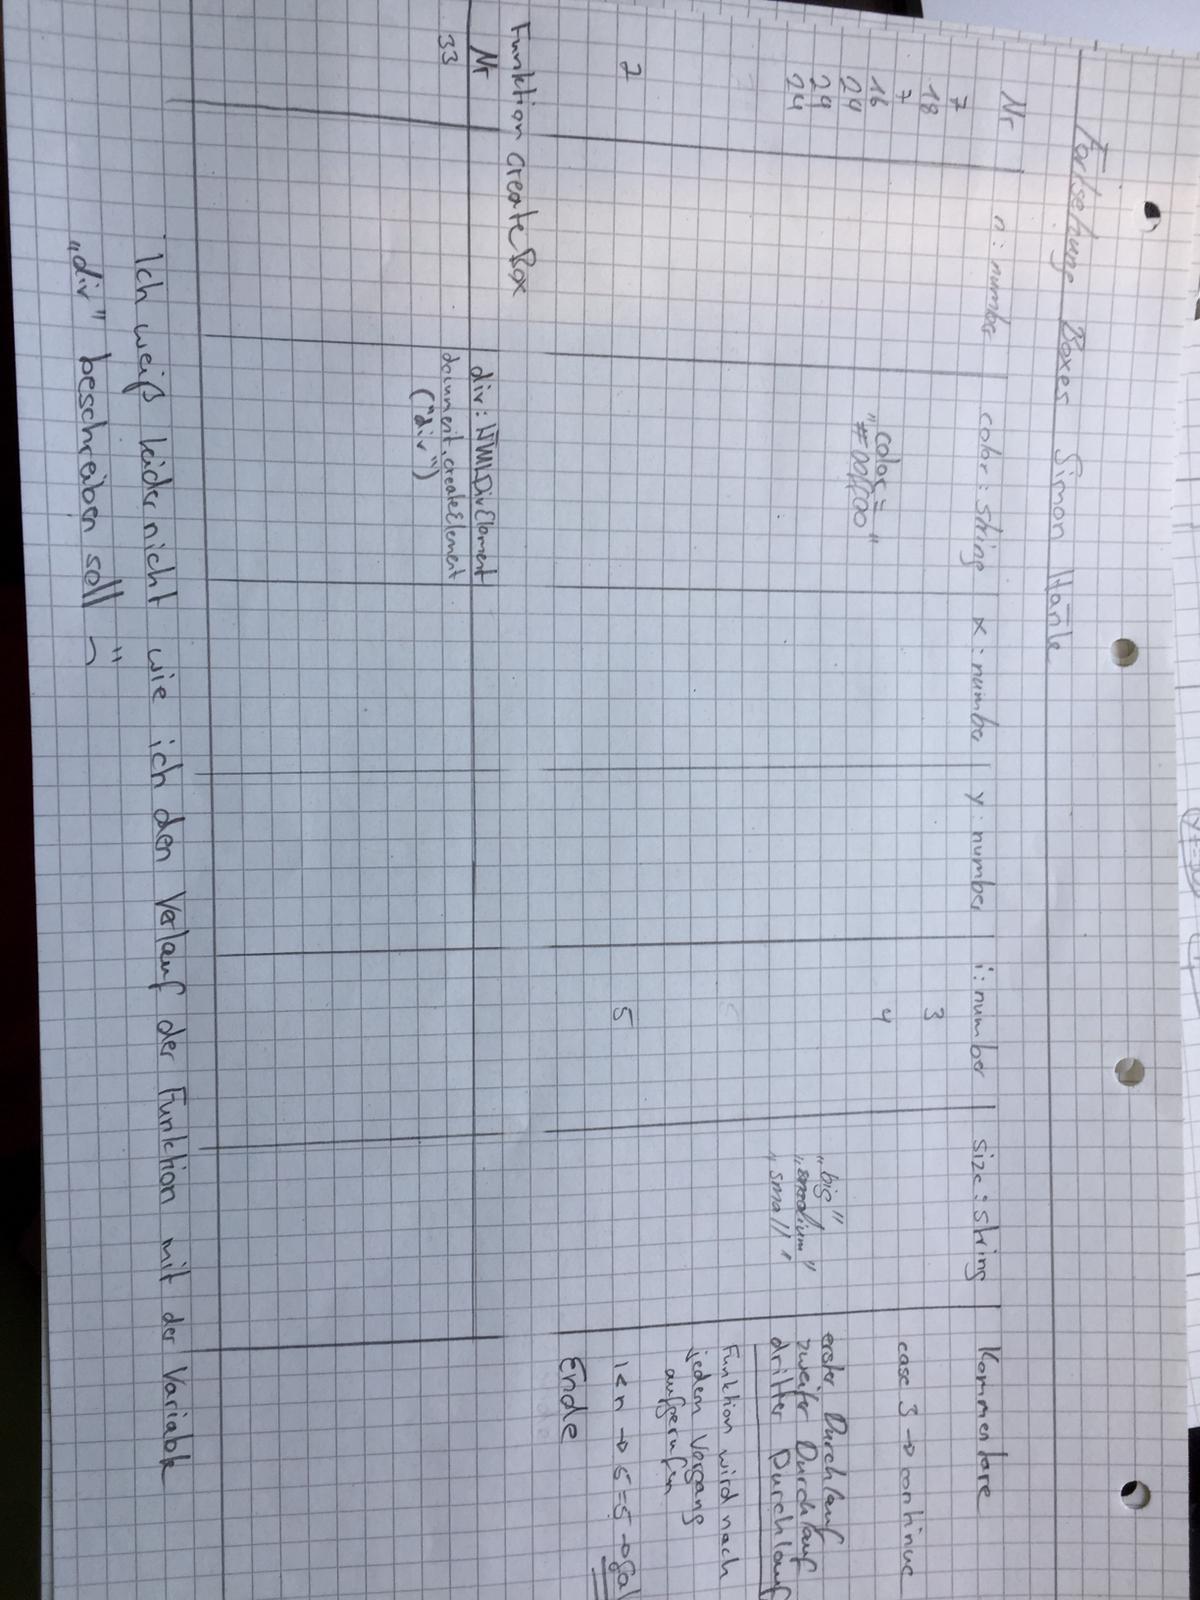 Fortsetzung Boxes Simon Hänle
Nr n: number color: string x: number y: number i: number size: string Kommentare
7 3
18 case 3 → continue
7 4
16 color =
24 "#00ff00" „big" erster Durchlauf
24 „medium" zweiter Durchlauf
24 „small" dritter Durchlauf
Funktion wird nach
jedem Vorgang
aufgerufen
2 5 i<n → 5=5
Ende
Funktion createBox
Nr div: HTMLDivElement
33 document.createElement
("div")
Ich weiß leider nicht wie ich den Verlauf der Funktion mit der Variable
„div" beschreiben soll